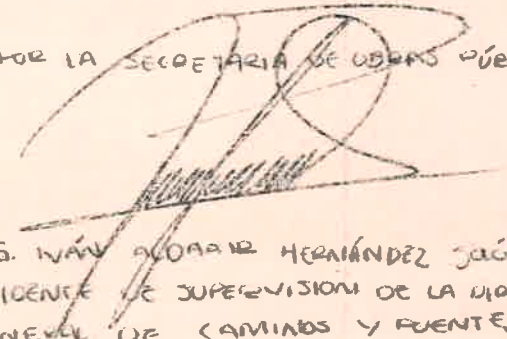 POR LA SECRETARIA DE OBRAS PÚB
G. IVÁN ALDAAIR HERNÁNDEZ
IDENTE DE SUPERVISION DE LA DIR
NERAL DE CAMINOS Y PUENTES